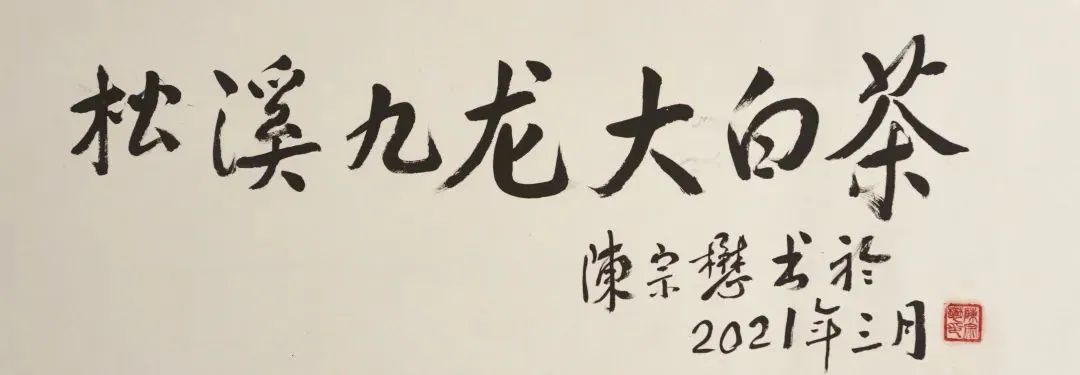 松溪九龙大白茶
陳宗懋书於
2021年三月